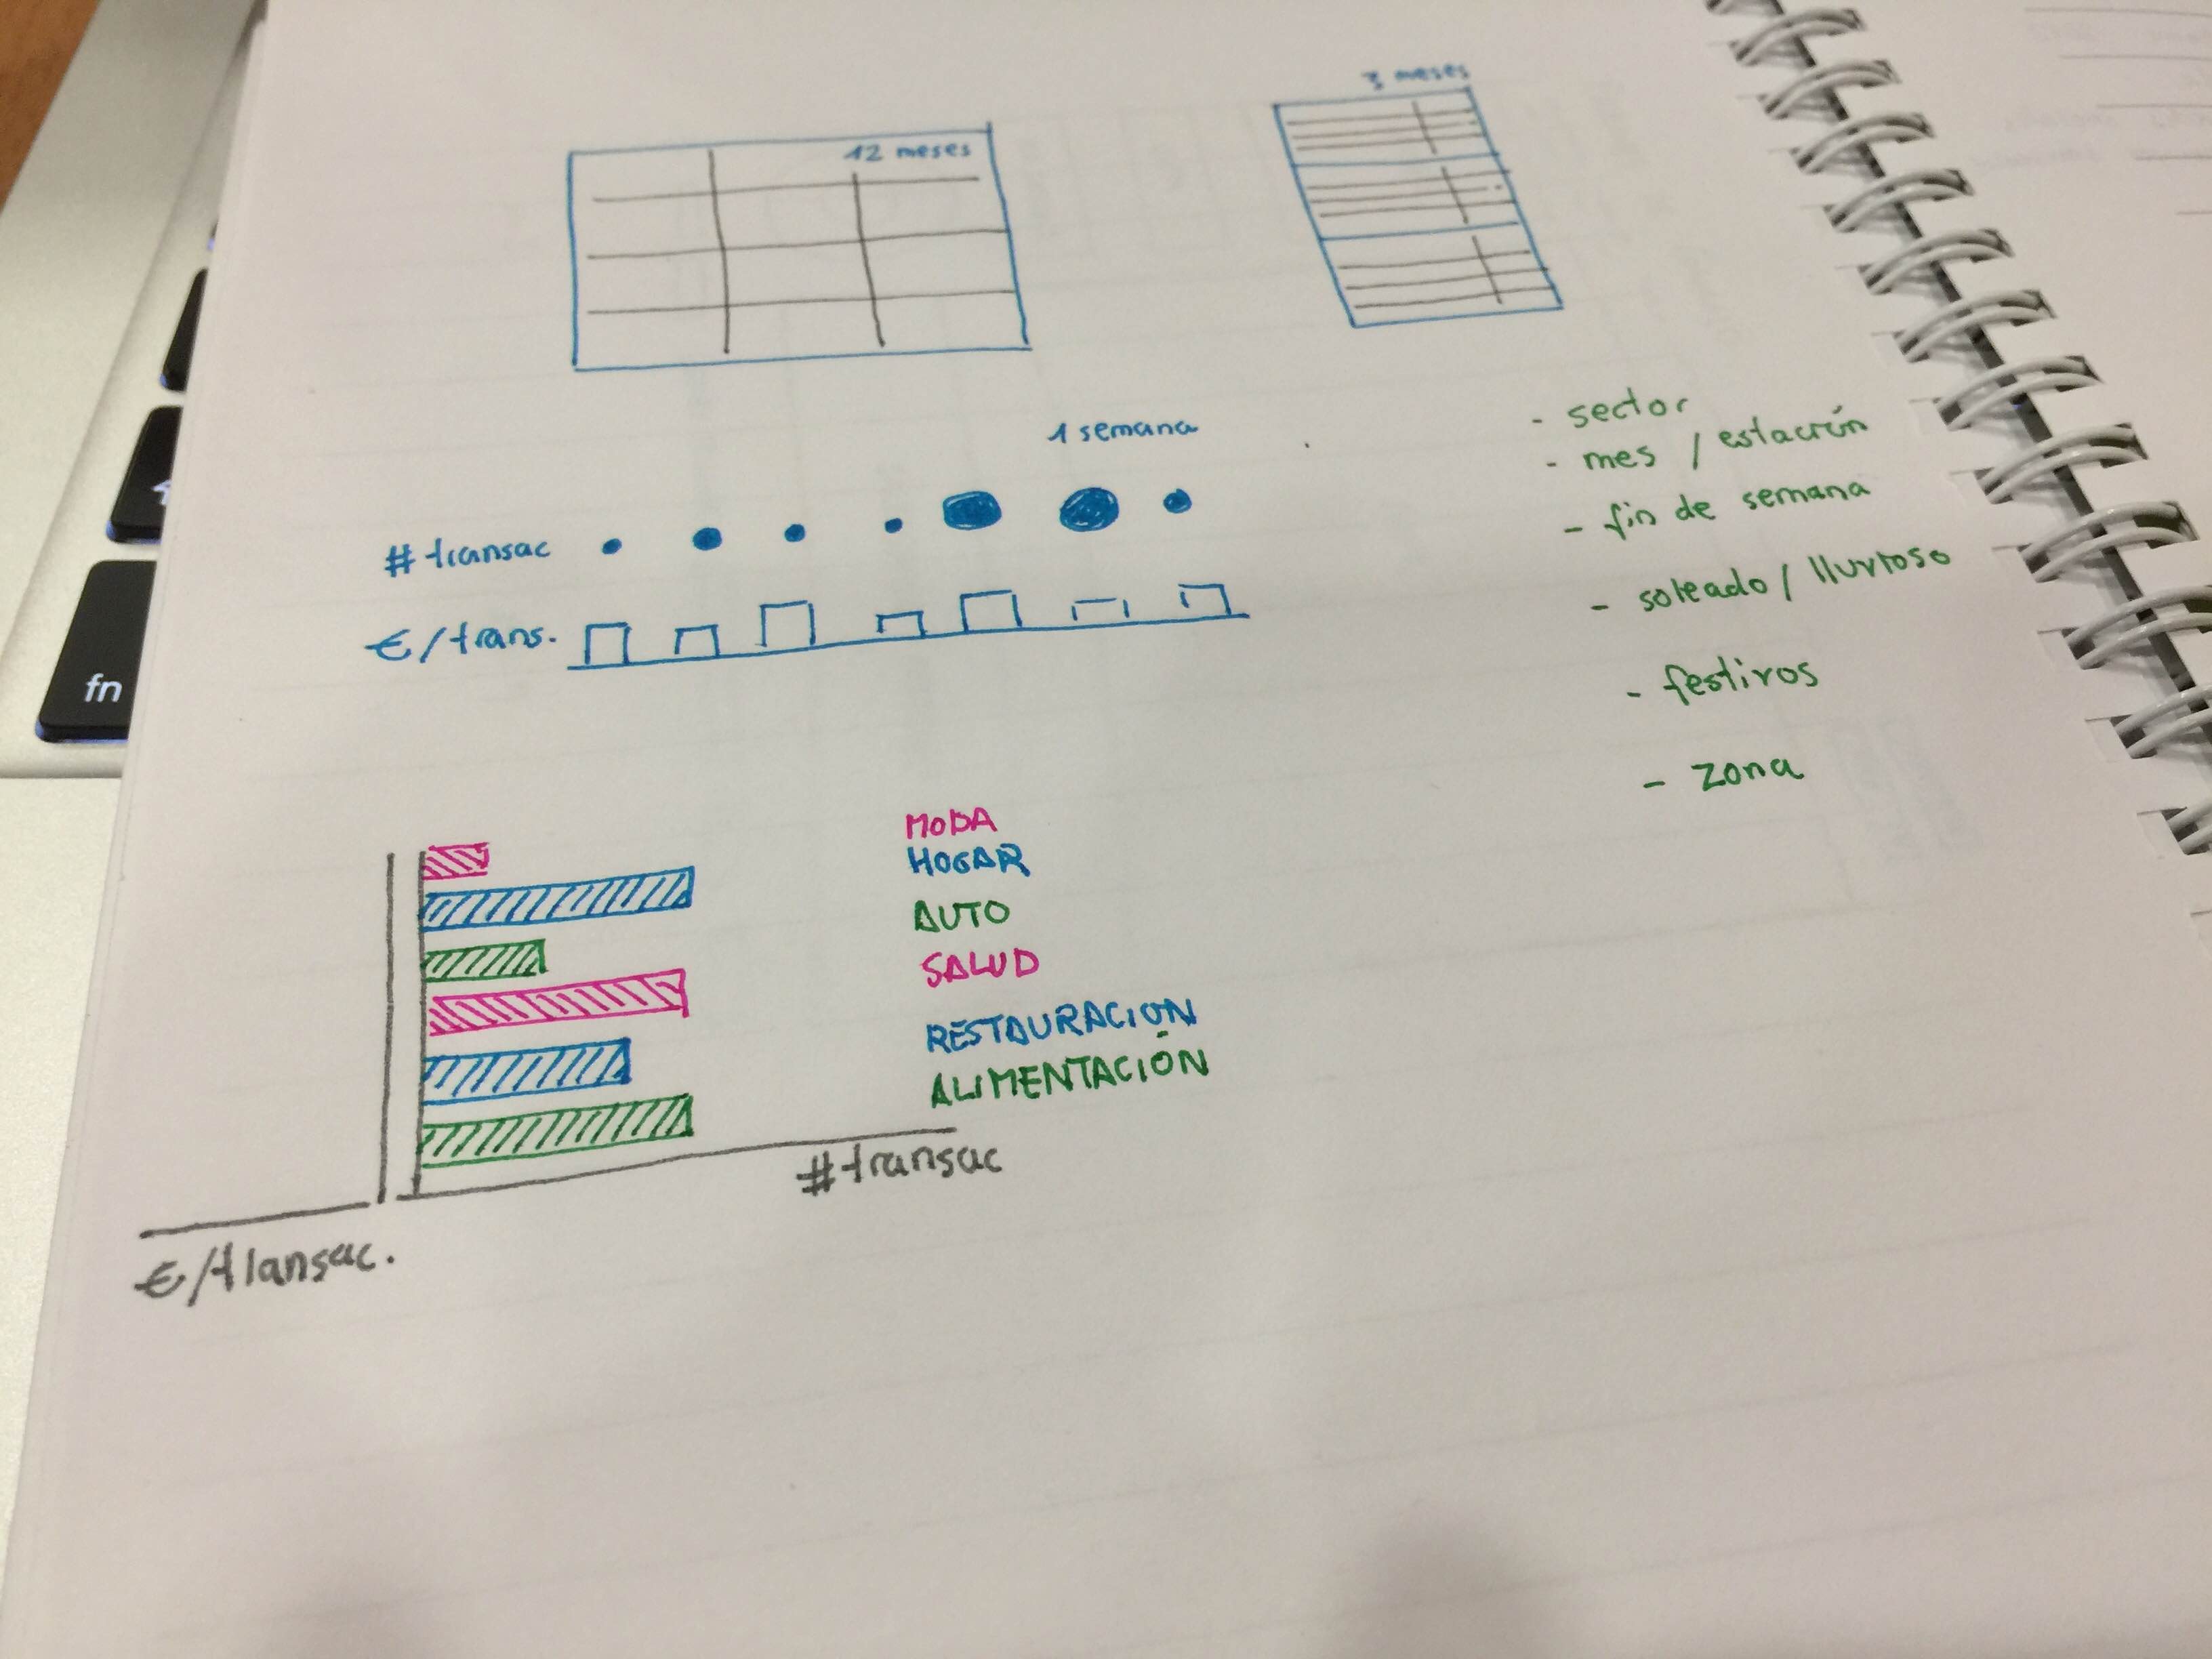 3 meses
12 meses
1 semana
# transac
€/trans.
- sector
- mes / estación
- fin de semana
- soleado / lluvioso
- festivos
- zona
MODA
HOGAR
AUTO
SALUD
RESTAURACIÓN
ALIMENTACIÓN
# transac
€/transac.
fn